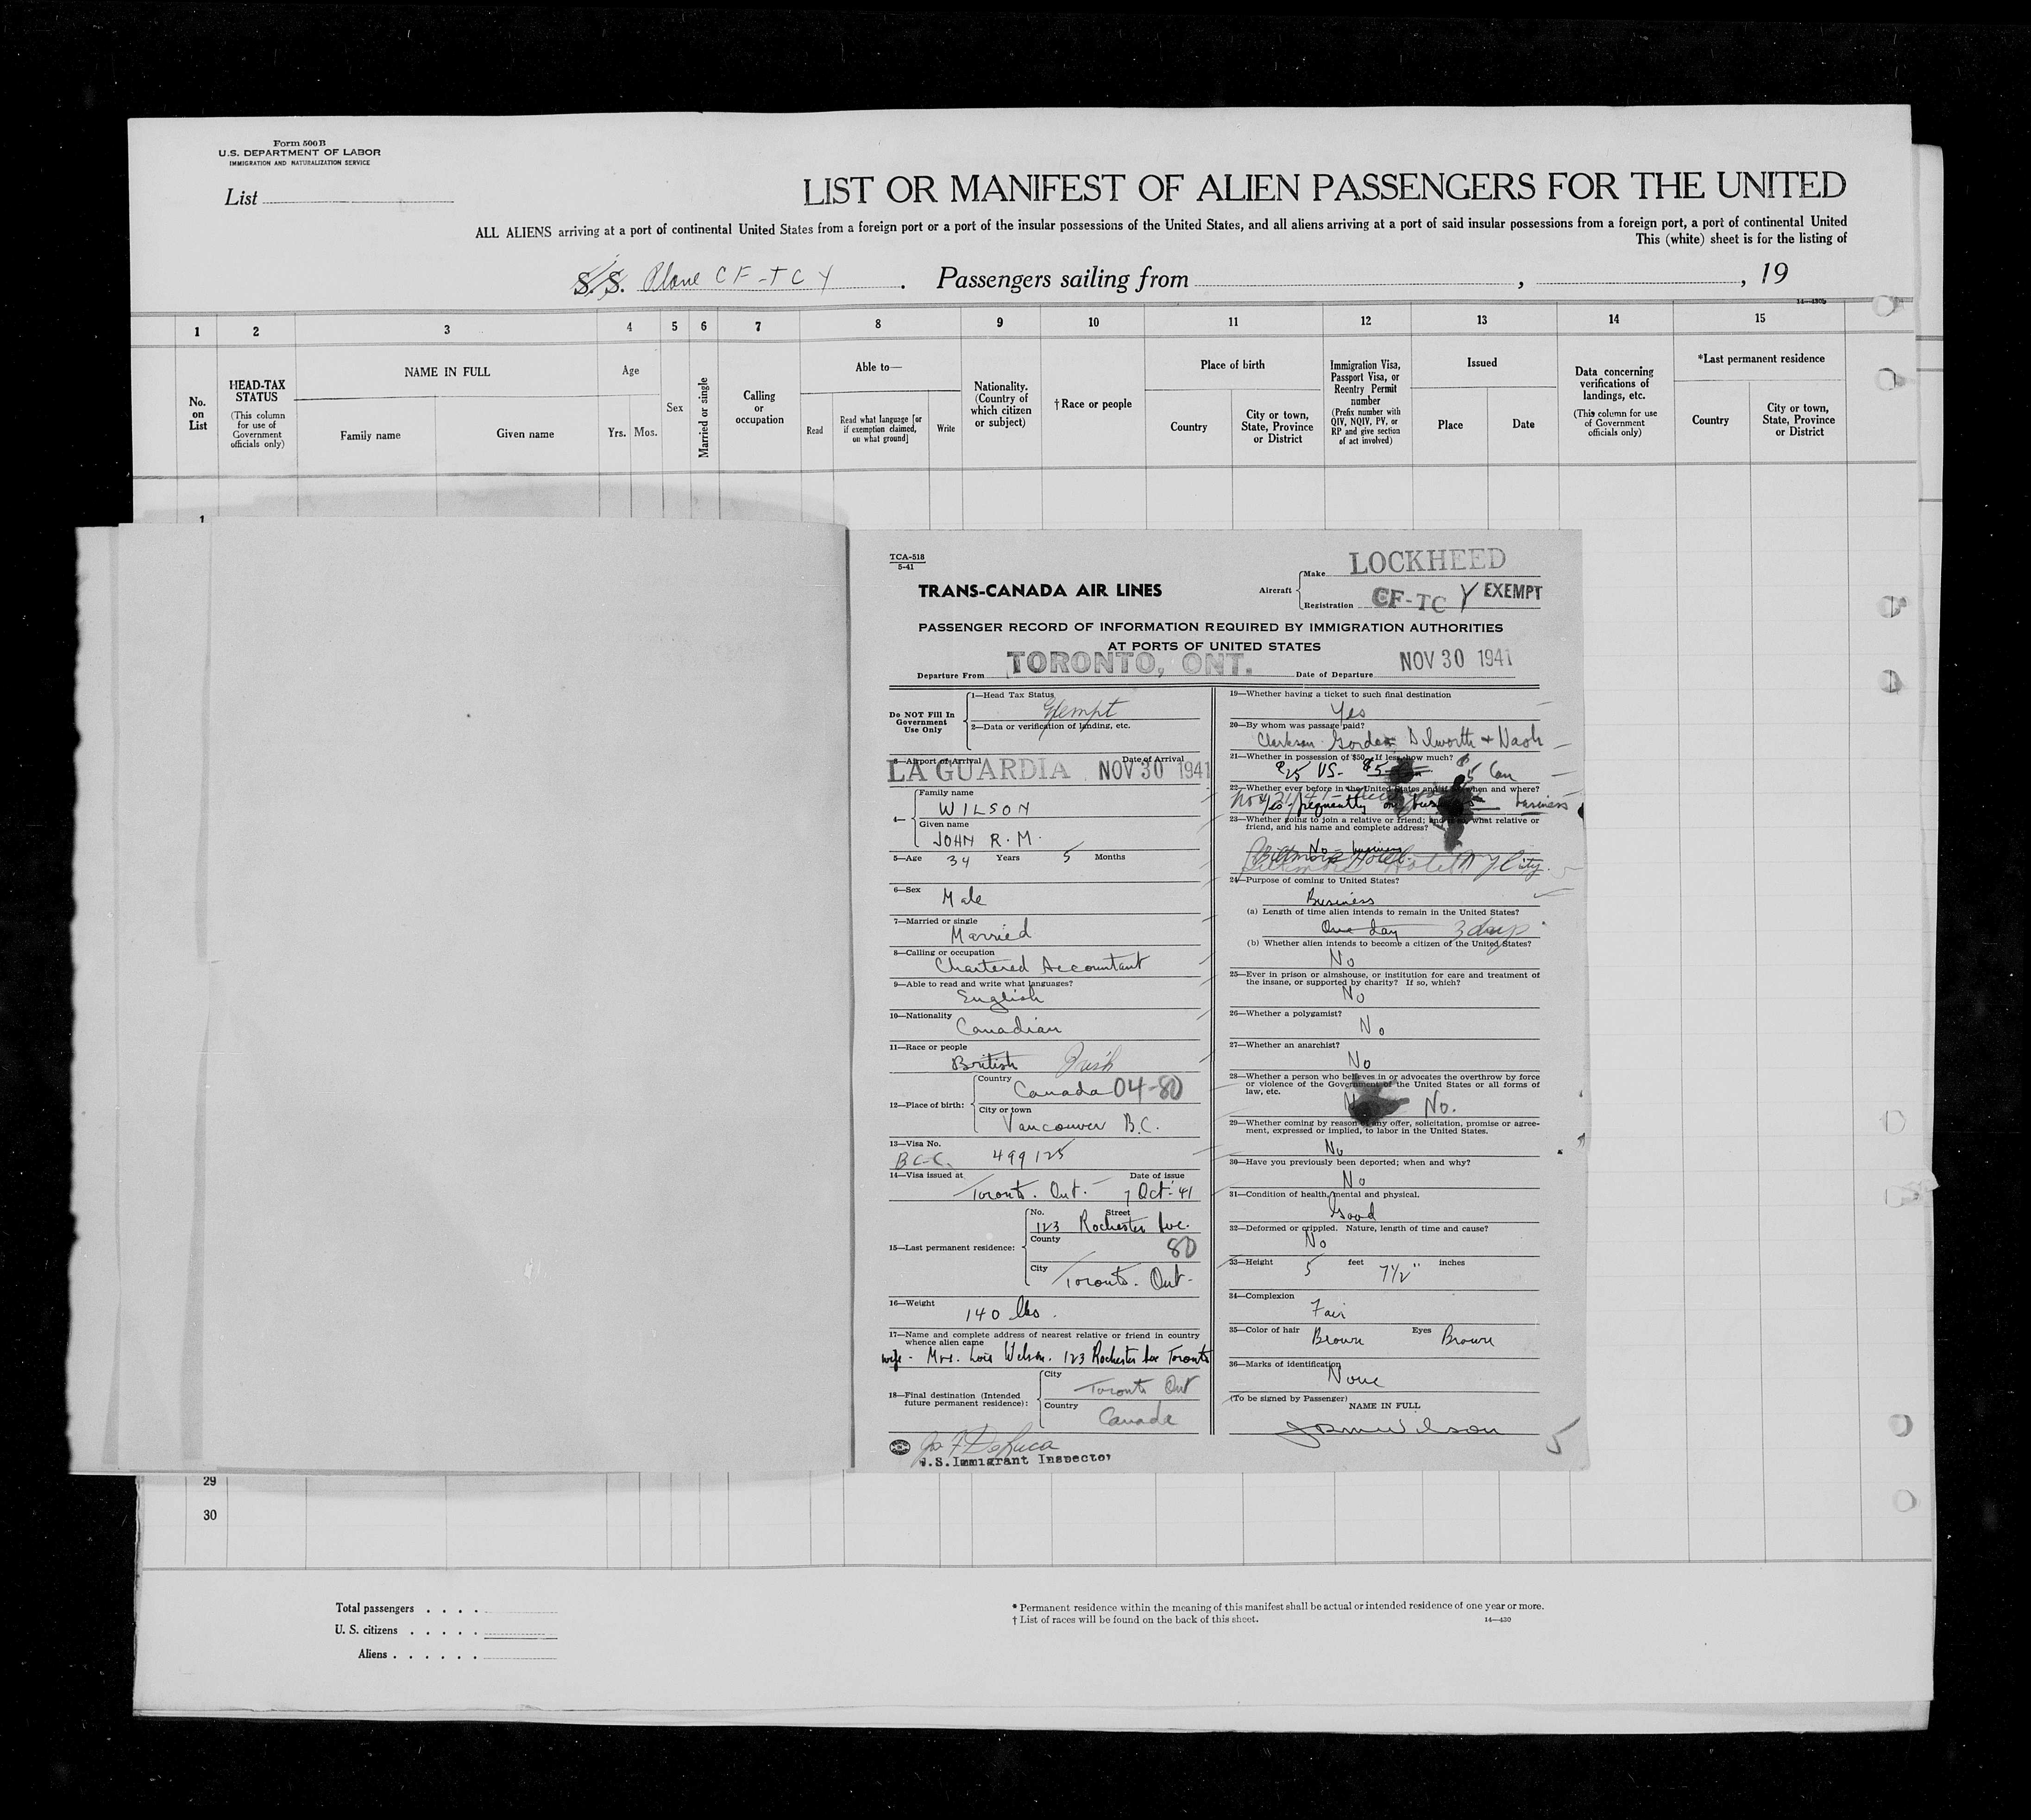 Form 500B
U.S. DEPARTMENT OF LABOR
IMMIGRATION AND NATURALIZATION SERVICE
List
LIST OR MANIFEST OF ALIEN PASSENGERS FOR THE UNITED
ALL ALIENS arriving at a port of continental United States from a foreign port or a port of the insular possessions of the United States, and all aliens arriving at a port of said insular possessions from a foreign port, a port of continental United
This (white) sheet is for the listing of
S.S. Plane CF-TCY. Passengers sailing from , , 19
14—430b
1 2 3 4 5 6 7 8 9 10 11 12 13 14 15
No. on List
HEAD-TAX STATUS
(This column for use of Government officials only)
NAME IN FULL
Family name
Given name
Age
Yrs. Mos.
Sex
Married or single
Calling or occupation
Able to—
Read
Read what language [or if exemption claimed, on what ground]
Write
Nationality. (Country of which citizen or subject)
†Race or people
Place of birth
Country
City or town, State, Province or District
Immigration Visa, Passport Visa, or Reentry Permit number
(Prefix number with QIV, NQIV, PV, or RP and give section of act involved)
Issued
Place
Date
Data concerning verifications of landings, etc.
(This column for use of Government officials only)
*Last permanent residence
Country
City or town, State, Province or District
1
TCA-518
5-41
TRANS-CANADA AIR LINES
Aircraft
Make LOCKHEED
Registration CF-TC Y EXEMPT
PASSENGER RECORD OF INFORMATION REQUIRED BY IMMIGRATION AUTHORITIES
AT PORTS OF UNITED STATES
Departure From TORONTO, ONT. Date of Departure NOV 30 1941
Do NOT Fill In
Government
Use Only
1—Head Tax Status
Exempt
2—Data or verification of landing, etc.
3—Airport of Arrival Date of Arrival
LA GUARDIA NOV 30 1941
4—
Family name
WILSON
Given name
JOHN R.M.
5—Age 34 Years 5 Months
6—Sex
Male
7—Married or single
Married
8—Calling or occupation
Chartered Accountant
9—Able to read and write what languages?
English
10—Nationality
Canadian
11—Race or people
British Irish
12—Place of birth:
Country
Canada 04-80
City or town
Vancouver B.C.
13—Visa No.
B.C.C. 499125
14—Visa issued at Date of issue
Toronto. Ont. 7 Oct. '41
15—Last permanent residence:
No. Street
123 Rochester Ave.
County
80
City
Toronto. Ont.
16—Weight
140 lbs.
17—Name and complete address of nearest relative or friend in country
whence alien came
wife - Mrs. Lois Wilson. 123 Rochester Ave Toronto
18—Final destination (Intended
future permanent residence):
City
Toronto Ont
Country
Canada
Jos F DeLuca
U.S. Immigrant Inspector
19—Whether having a ticket to such final destination
Yes
20—By whom was passage paid?
Clarkson Gordon Dilworth + Nash
21—Whether in possession of $50. If less, how much?
$25 US- $5 $5 Can
22—Whether ever before in the United States and if so, when and where?
Nov/21/41
Yes - frequently on business business
23—Whether going to join a relative or friend; and if so, what relative or
friend, and his name and complete address?
No - business
Biltmore Hotel
Biltmore Hotel N Y City.
24—Purpose of coming to United States?
Business
(a) Length of time alien intends to remain in the United States?
One day 3 days
(b) Whether alien intends to become a citizen of the United States?
No
25—Ever in prison or almshouse, or institution for care and treatment of
the insane, or supported by charity? If so, which?
No
26—Whether a polygamist?
No
27—Whether an anarchist?
No
28—Whether a person who believes in or advocates the overthrow by force
or violence of the Government of the United States or all forms of
law, etc.
No.
29—Whether coming by reason of any offer, solicitation, promise or agree-
ment, expressed or implied, to labor in the United States.
No
30—Have you previously been deported; when and why?
No
31—Condition of health, mental and physical.
Good
32—Deformed or crippled. Nature, length of time and cause?
No
33—Height 5 feet 7½" inches
34—Complexion
Fair
35—Color of hair Brown Eyes Brown
36—Marks of identification
None
(To be signed by Passenger)
NAME IN FULL
JRM Wilson
5
29
30
Total passengers . . . .
U. S. citizens . . . . .
Aliens . . . . . .
* Permanent residence within the meaning of this manifest shall be actual or intended residence of one year or more.
† List of races will be found on the back of this sheet. 14—430